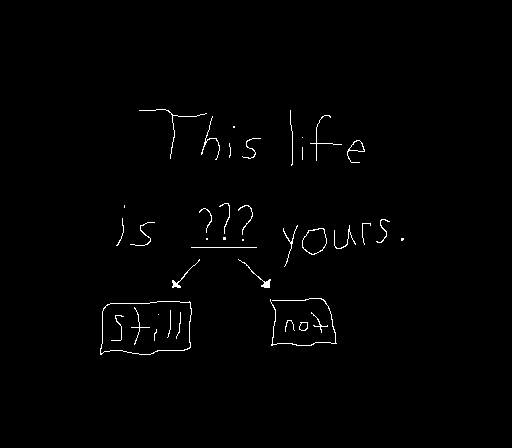 This life
is ??? yours.
still not